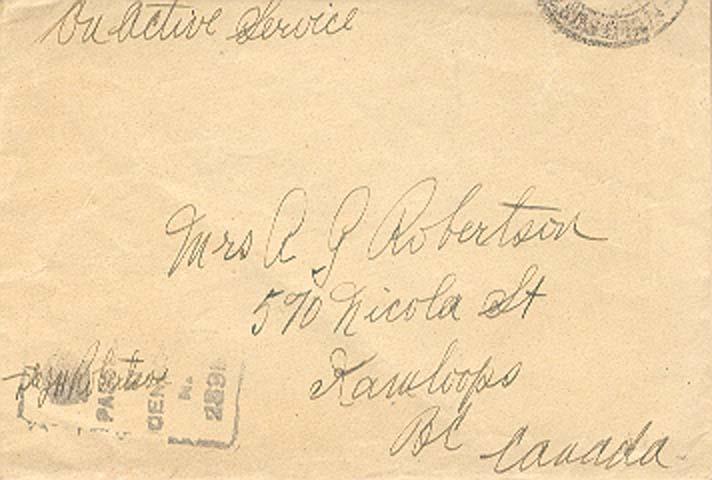 On Active Service
Mrs R G Robertson
570 Nicola St
Kamloops
BC Canada
Robertson
PAS
CEN
No.
289